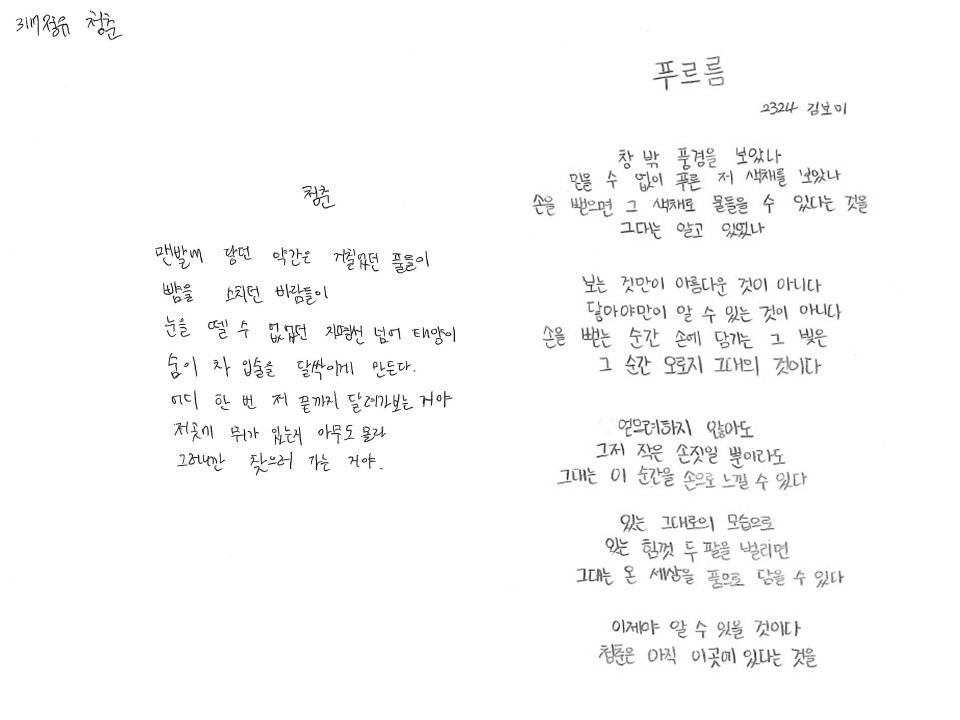 청춘
청춘
맨발에 닿던 약간은 거칠었던 풀들이
뺨을 스치던 바람들이
눈을 뗄 수 없었던 지평선 넘어 태양이
숨이 차 입술을 달싹이게 만든다.
어디 한 번 저 끝까지 달려가보는 거야
저곳에 뭐가 있는지 아무도 몰라
그러니깐 찾으러 가는 거야.
푸르름
2324 김보미
창 밖 풍경을 보았나
믿을 수 없이 푸른 저 색채를 보았나
손을 뻗으면 그 색채로 물들을 수 있다는 것을
그대는 알고 있었나
보는 것만이 아름다운 것이 아니다
닿아야만이 알 수 있는 것이 아니다
손을 뻗는 순간 손에 담기는 그 빛은
그 순간 오로지 그대의 것이다
연모려하지 않아도
그저 작은 손짓일 뿐이라도
그대는 이 순간을 손으로 느낄 수 있다
있는 그대로의 모습으로
있는 힘껏 두 팔을 벌리면
그대는 온 세상을 품으로 담을 수 있다
이제야 알 수 있을 것이다
청춘은 아직 이곳에 있다는 것을